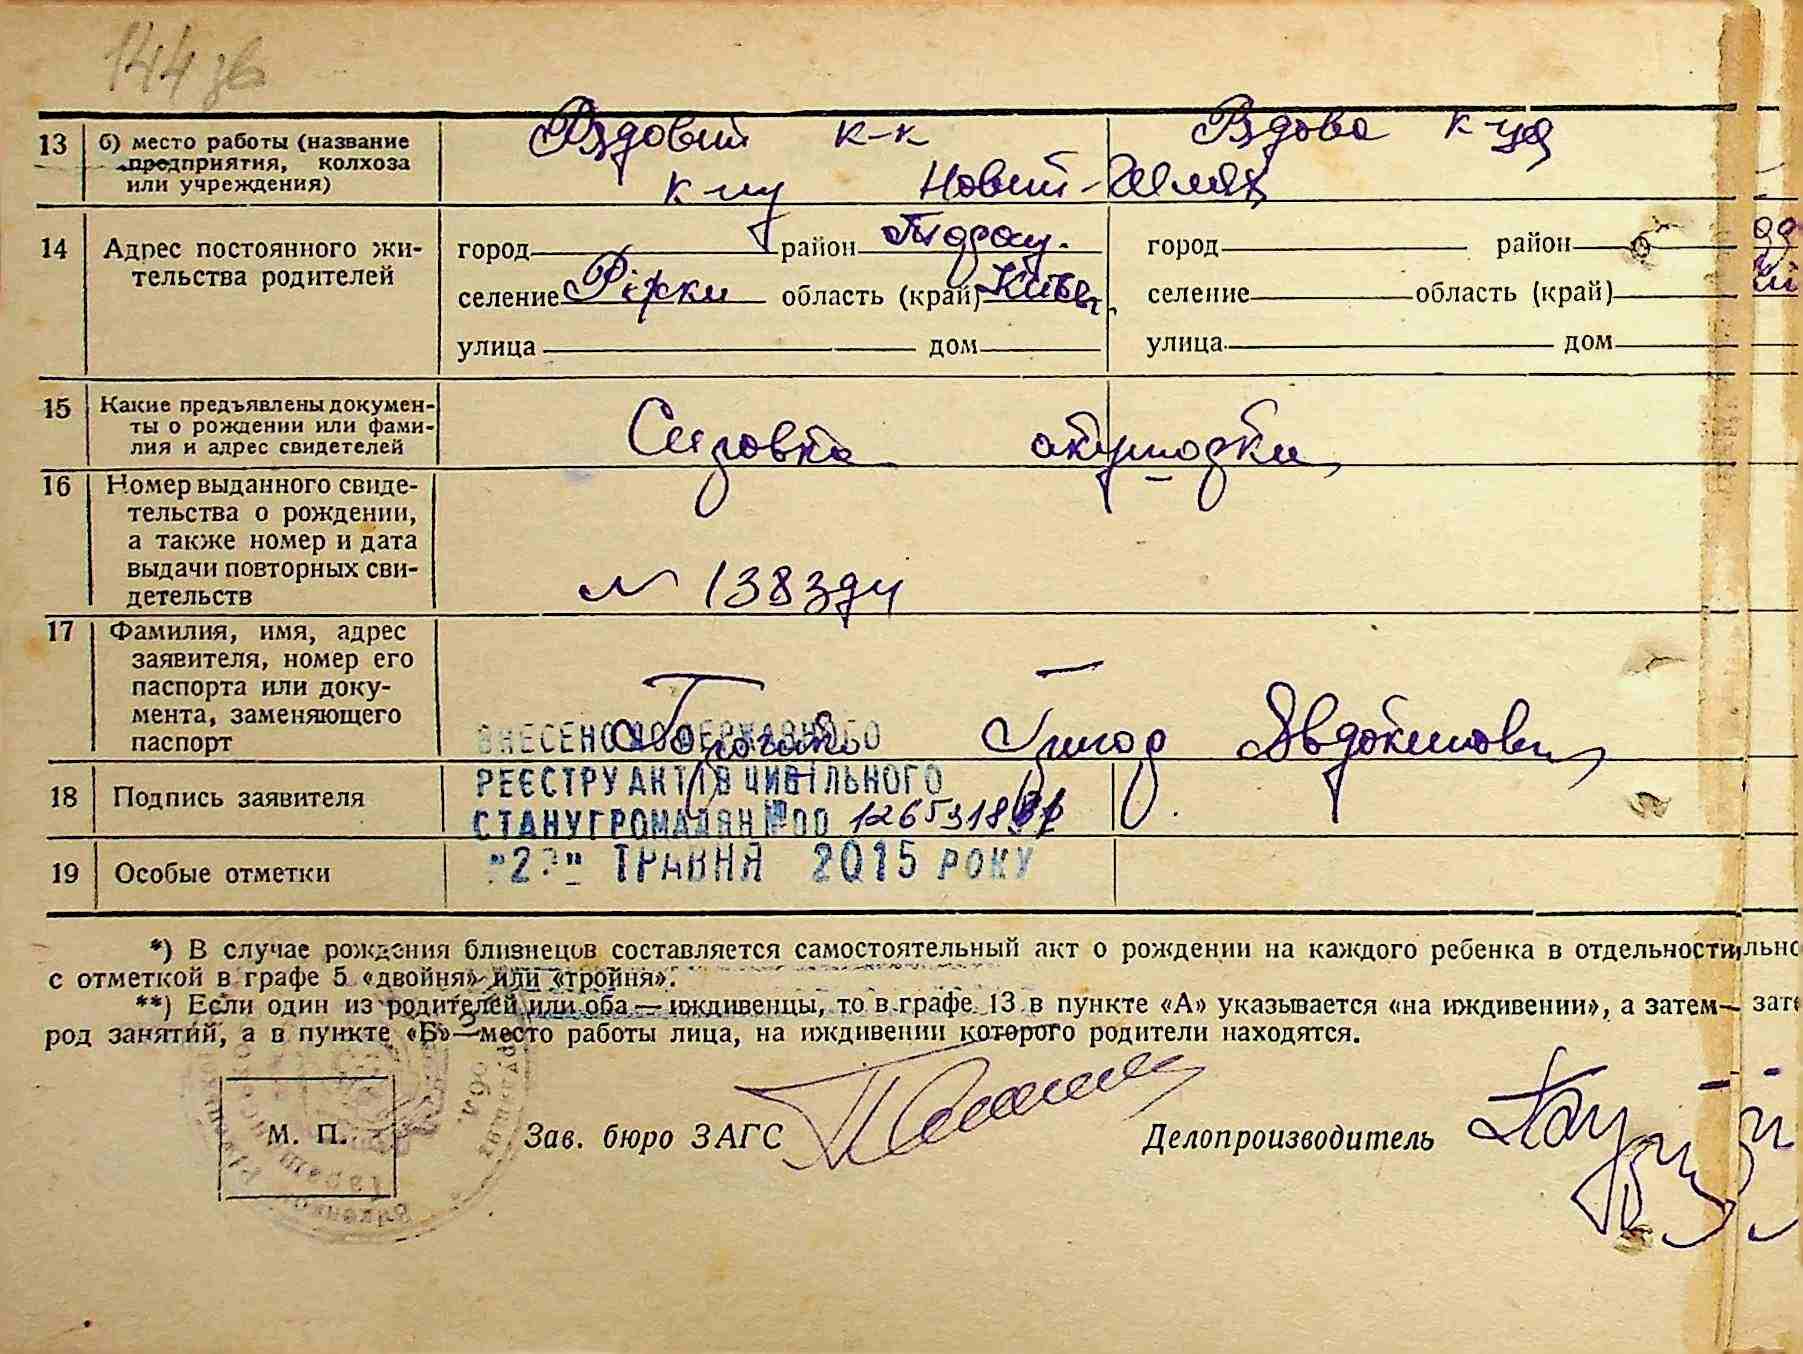 144 зв
13 б) место работы (название предприятия, колхоза или учреждения)
Рядовий к-к
Рядова к-ця
к-пу Новий-Шлях
14 Адрес постоянного жительства родителей
город район
селение Рірки область (край) Київ.
улица дом
город район
селение область (край)
улица дом
15 Какие предъявлены документы о рождении или фамилия и адрес свидетелей
акушорки
16 Номер выданного свидетельства о рождении, а также номер и дата выдачи повторных свидетельств
17 Фамилия, имя, адрес заявителя, номер его паспорта или документа, заменяющего паспорт
Григор Явдокимович
18 Подпись заявителя
19 Особые отметки
ВНЕСЕНО ДО ДЕРЖАВНОГО
РЕЄСТРУ АКТІВ ЦИВІЛЬНОГО
СТАНУ ГРОМАДЯН №00
ТРАВНЯ 2015 РОКУ
*) В случае рождения близнецов составляется самостоятельный акт о рождении на каждого ребенка в отдельности
с отметкой в графе 5 «двойня» или «тройня».
**) Если один из родителей или оба — иждивенцы, то в графе 13 в пункте «А» указывается «на иждивении», а затем—
род занятий, а в пункте «Б»—место работы лица, на иждивении которого родители находятся.
М. П.
Зав. бюро ЗАГС
Делопроизводитель